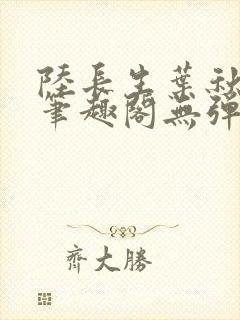 陸長生葉秋
筆趣閣無彈
齊大勝